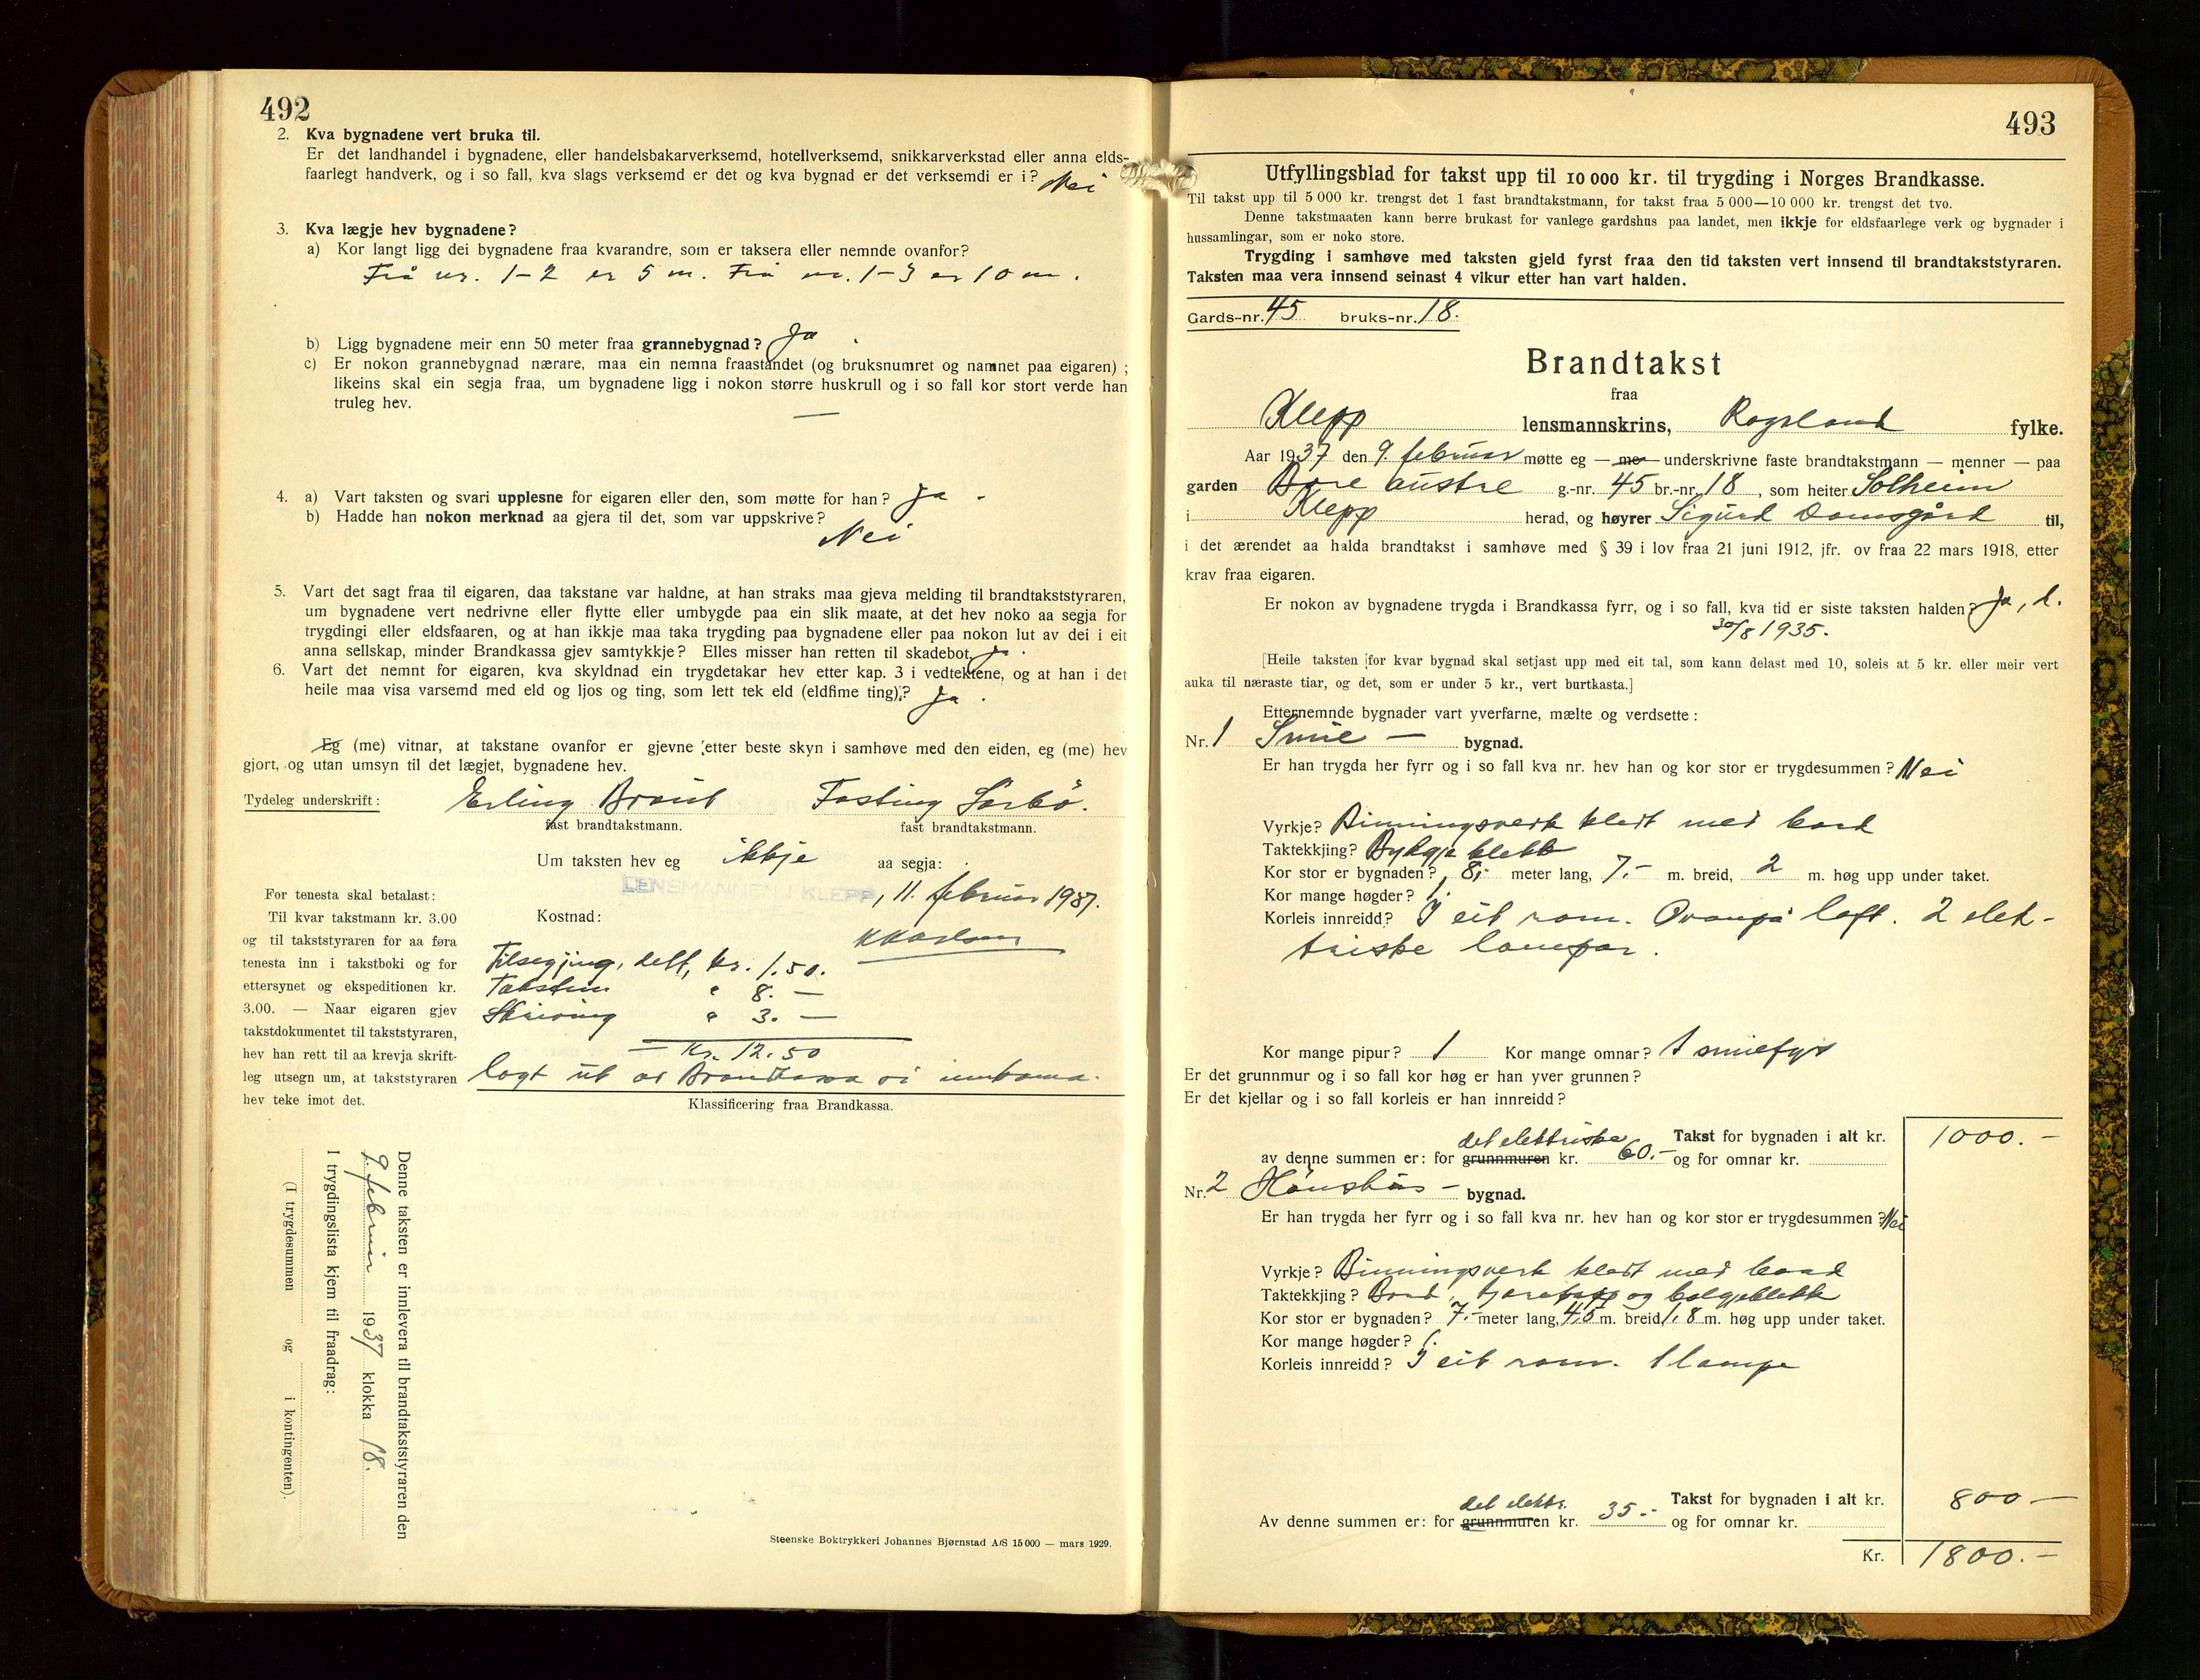 492
2. Kva bygnadene vert bruka til.
Er det landhandel i bygnadene, eller handelsbakarverksemd, hotellverksemd, snikkarverkstad eller anna elds-
faarlegt handverk, og i so fall, kva slags verksemd er det og kva bygnad er det verksemdi er i? Nei
3. Kva lægje hev bygnadene?
a) Kor langt ligg dei bygnadene fraa kvarandre, som er taksera eller nemnde ovanfor?
Frå nr. 1-2 er 5 m. Frå nr. 1-3 er 10 m.
b) Ligg bygnadene meir enn 50 meter fraa grannebygnad? Ja
c) Er nokon grannebygnad nærare, maa ein nemna fraastandet (og bruksnumret og namnet paa eigaren);
likeins skal ein segja fraa, um bygnadene ligg i nokon større huskrull og i so fall kor stort verde han
truleg hev. —
4. a) Vart taksten og svari upplesne for eigaren eller den, som møtte for han? Ja.
b) Hadde han nokon merknad aa gjera til det, som var uppskrive?
Nei
5. Vart det sagt fraa til eigaren, daa takstane var haldne, at han straks maa gjeva melding til brandtakststyraren,
um bygnadene vert nedrivne eller flytte eller umbygde paa ein slik maate, at det hev noko aa segja for
trygdingi eller eldsfaaren, og at han ikkje maa taka trygding paa bygnadene eller paa nokon lut av dei i eit
anna sellskap, minder Brandkassa gjev samtykkje? Elles misser han retten til skadebot. Ja.
6. Vart det nemnt for eigaren, kva skyldnad ein trygdetakar hev etter kap. 3 i vedtektene, og at han i det
heile maa visa varsemd med eld og ljos og ting, som lett tek eld (eldfime ting)? Ja.
Eg (me) vitnar, at takstane ovanfor er gjevne etter beste skyn i samhøve med den eiden, eg (me) hev
gjort, og utan umsyn til det lægjet, bygnadene hev.
Tydeleg underskrift: Erling Braut Fasting Sørbø.
fast brandtakstmann. fast brandtakstmann.
Um taksten hev eg ikkje aa segja:
LENSMANNEN I KLEPP, 11. februar 1937.
Kostnad:
Tilsegjing, delt, kr. 1.50.
Taksten " 8. —
Skriving " 3. —
Kr. 12.50
lagt ut av
Klassificering fraa Brandkassa.
For tenesta skal betalast:
Til kvar takstmann kr. 3.00
og til takststyraren for aa føra
tenesta inn i takstboki og for
ettersynet og ekspeditionen kr.
3.00. — Naar eigaren gjev
takstdokumentet til takststyraren,
hev han rett til aa krevja skrift-
leg utsegn um, at takststyraren
hev teke imot det.
Denne taksten er innlevera til brandtakststyraren den
9. februar 1937 klokka 18.
I trygdingslista kjem til fraadrag:
(I trygdesummen og i kontingenten).
Steenske Boktrykkeri Johannes Bjørnstad A/S 15 000 — mars 1929.
493
Utfyllingsblad for takst upp til 10 000 kr. til trygding i Norges Brandkasse.
Til takst upp til 5 000 kr. trengst det 1 fast brandtakstmann, for takst fraa 5 000—10 000 kr. trengst det tvo.
Denne takstmaaten kann berre brukast for vanlege gardshus paa landet, men ikkje for eldsfaarlege verk og bygnader i
hussamlingar, som er noko store.
Trygding i samhøve med taksten gjeld fyrst fraa den tid taksten vert innsend til brandtakststyraren.
Taksten maa vera innsend seinast 4 vikur etter han vart halden.
Gards-nr. 45 bruks-nr. 18.
Brandtakst
fraa
Klepp lensmannskrins, Rogaland fylke.
Aar 1937 den 9. februar møtte eg — me — underskrivne faste brandtakstmann — menner — paa
garden Bore austre g.-nr. 45 br.-nr. 18, som heiter Solheim
i Klepp herad, og høyrer Sigurd Domsgård til,
i det ærendet aa halda brandtakst i samhøve med § 39 i lov fraa 21 juni 1912, jfr. ov fraa 22 mars 1918, etter
krav fraa eigaren.
Er nokon av bygnadene trygda i Brandkassa fyrr, og i so fall, kva tid er siste taksten halden? Ja, d.
30/8 1935.
[Heile taksten for kvar bygnad skal setjast upp med eit tal, som kann delast med 10, soleis at 5 kr. eller meir vert
auka til næraste tiar, og det, som er under 5 kr., vert burtkasta.]
Etternemnde bygnader vart yverfarne, mælte og verdsette:
Nr. 1 Smie — bygnad.
Er han trygda her fyrr og i so fall kva nr. hev han og kor stor er trygdesummen? Nei
Vyrkje? Binningsverk kledt med bord
Taktekkjing? Bylgjeblekk
Kor stor er bygnaden? 8,- meter lang, 7.- m. breid, 2 m. høg upp under taket.
Kor mange høgder? 1.
Korleis innreidd? I eit rom. Ovanpå loft. 2 elek-
triske lampar.
Kor mange pipur? 1 Kor mange omnar? 1 smiefyr
Er det grunnmur og i so fall kor høg er han yver grunnen?
Er det kjellar og i so fall korleis er han innreidd?
det elektriske Takst for bygnaden i alt kr. 1000.-
av denne summen er: for grunnmuren kr. 60.- og for omnar kr.
Nr. 2 Hønshus — bygnad.
Er han trygda her fyrr og i so fall kva nr. hev han og kor stor er trygdesummen? Nei
Vyrkje? Binningsverk kledt med bord
Taktekkjing? Bord, tjærepapp og bølgjeblekk
Kor stor er bygnaden? 7.- meter lang, 4,5 m. breid 1,8 m. høg upp under taket.
Kor mange høgder? 1.
Korleis innreidd? I eit rom. 1 lampe
det elektr. Takst for bygnaden i alt kr. 800 —
Av denne summen er: for grunnmuren kr. 35.- og for omnar kr.
Kr. 1800.-